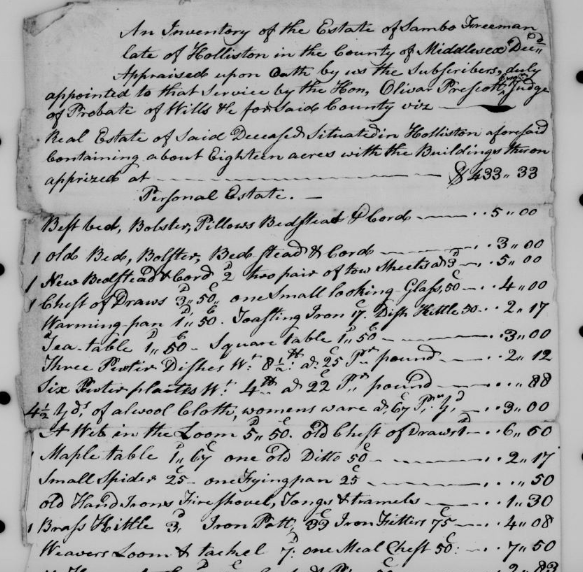 An Inventory of the Estate of Sambo Freeman
late of Holliston in the County of Middlesex Decd
Appraised upon Oath by us the Subscribers, duly
appointed to that Service by the Hon, Oliver Prescott, Esqr Judge
of Probate of Wills &c for Said County viz
Real Estate of Said Deceased, Situated in Holliston aforesaid
Containing about Eighteen acres with the Buildings thereon
apprized at — $ 433,, 33
Personal Estate. —
Best bed, Bolster, Pillows Bedstead & Cord — 5,, 00
1 old Bed, Bolster, Bedstead & Cord — 3,, 00
1 New Bedstead & Cord 2 two pair of tow Sheets a 3 — 5,, 00
1 Chest of Draws 3,, 50, one Small looking Glass, 50 — 4,, 00
Warming pan 1,, 50. Toasting Iron 17 Dish Kittle 50 — 2,, 17
Tea table 1,, 50 — Square table 1,, 50 — 3,, 00
Three Pewter Dishes Wt. 8½ lb a 25 Pr pound — 2,, 12
Six Pewter plaites Wt. 4 lb a 22 Pr pound — ,, 88
4½ yds. of alwool Cloth, womens ware a, 67 Pr. yd, — 3,, 00
A Web in the Loom 5,, 50. old Chest of Draws 1 — 6,, 50
1 Maple table 1,, 67 one old Ditto 50 — 2,, 17
Small Spider 25 — one Frying pan 25 — ,, 50
old Hand Irons Fire shovel, Tongs & tramels — 1,, 30
1 Brass Kittle 3,, Iron Pott, 33 Iron Kittles 75 — 4,, 08
Weavers Loom & tackel 7,, one Meal Chest 50: — 7,, 50